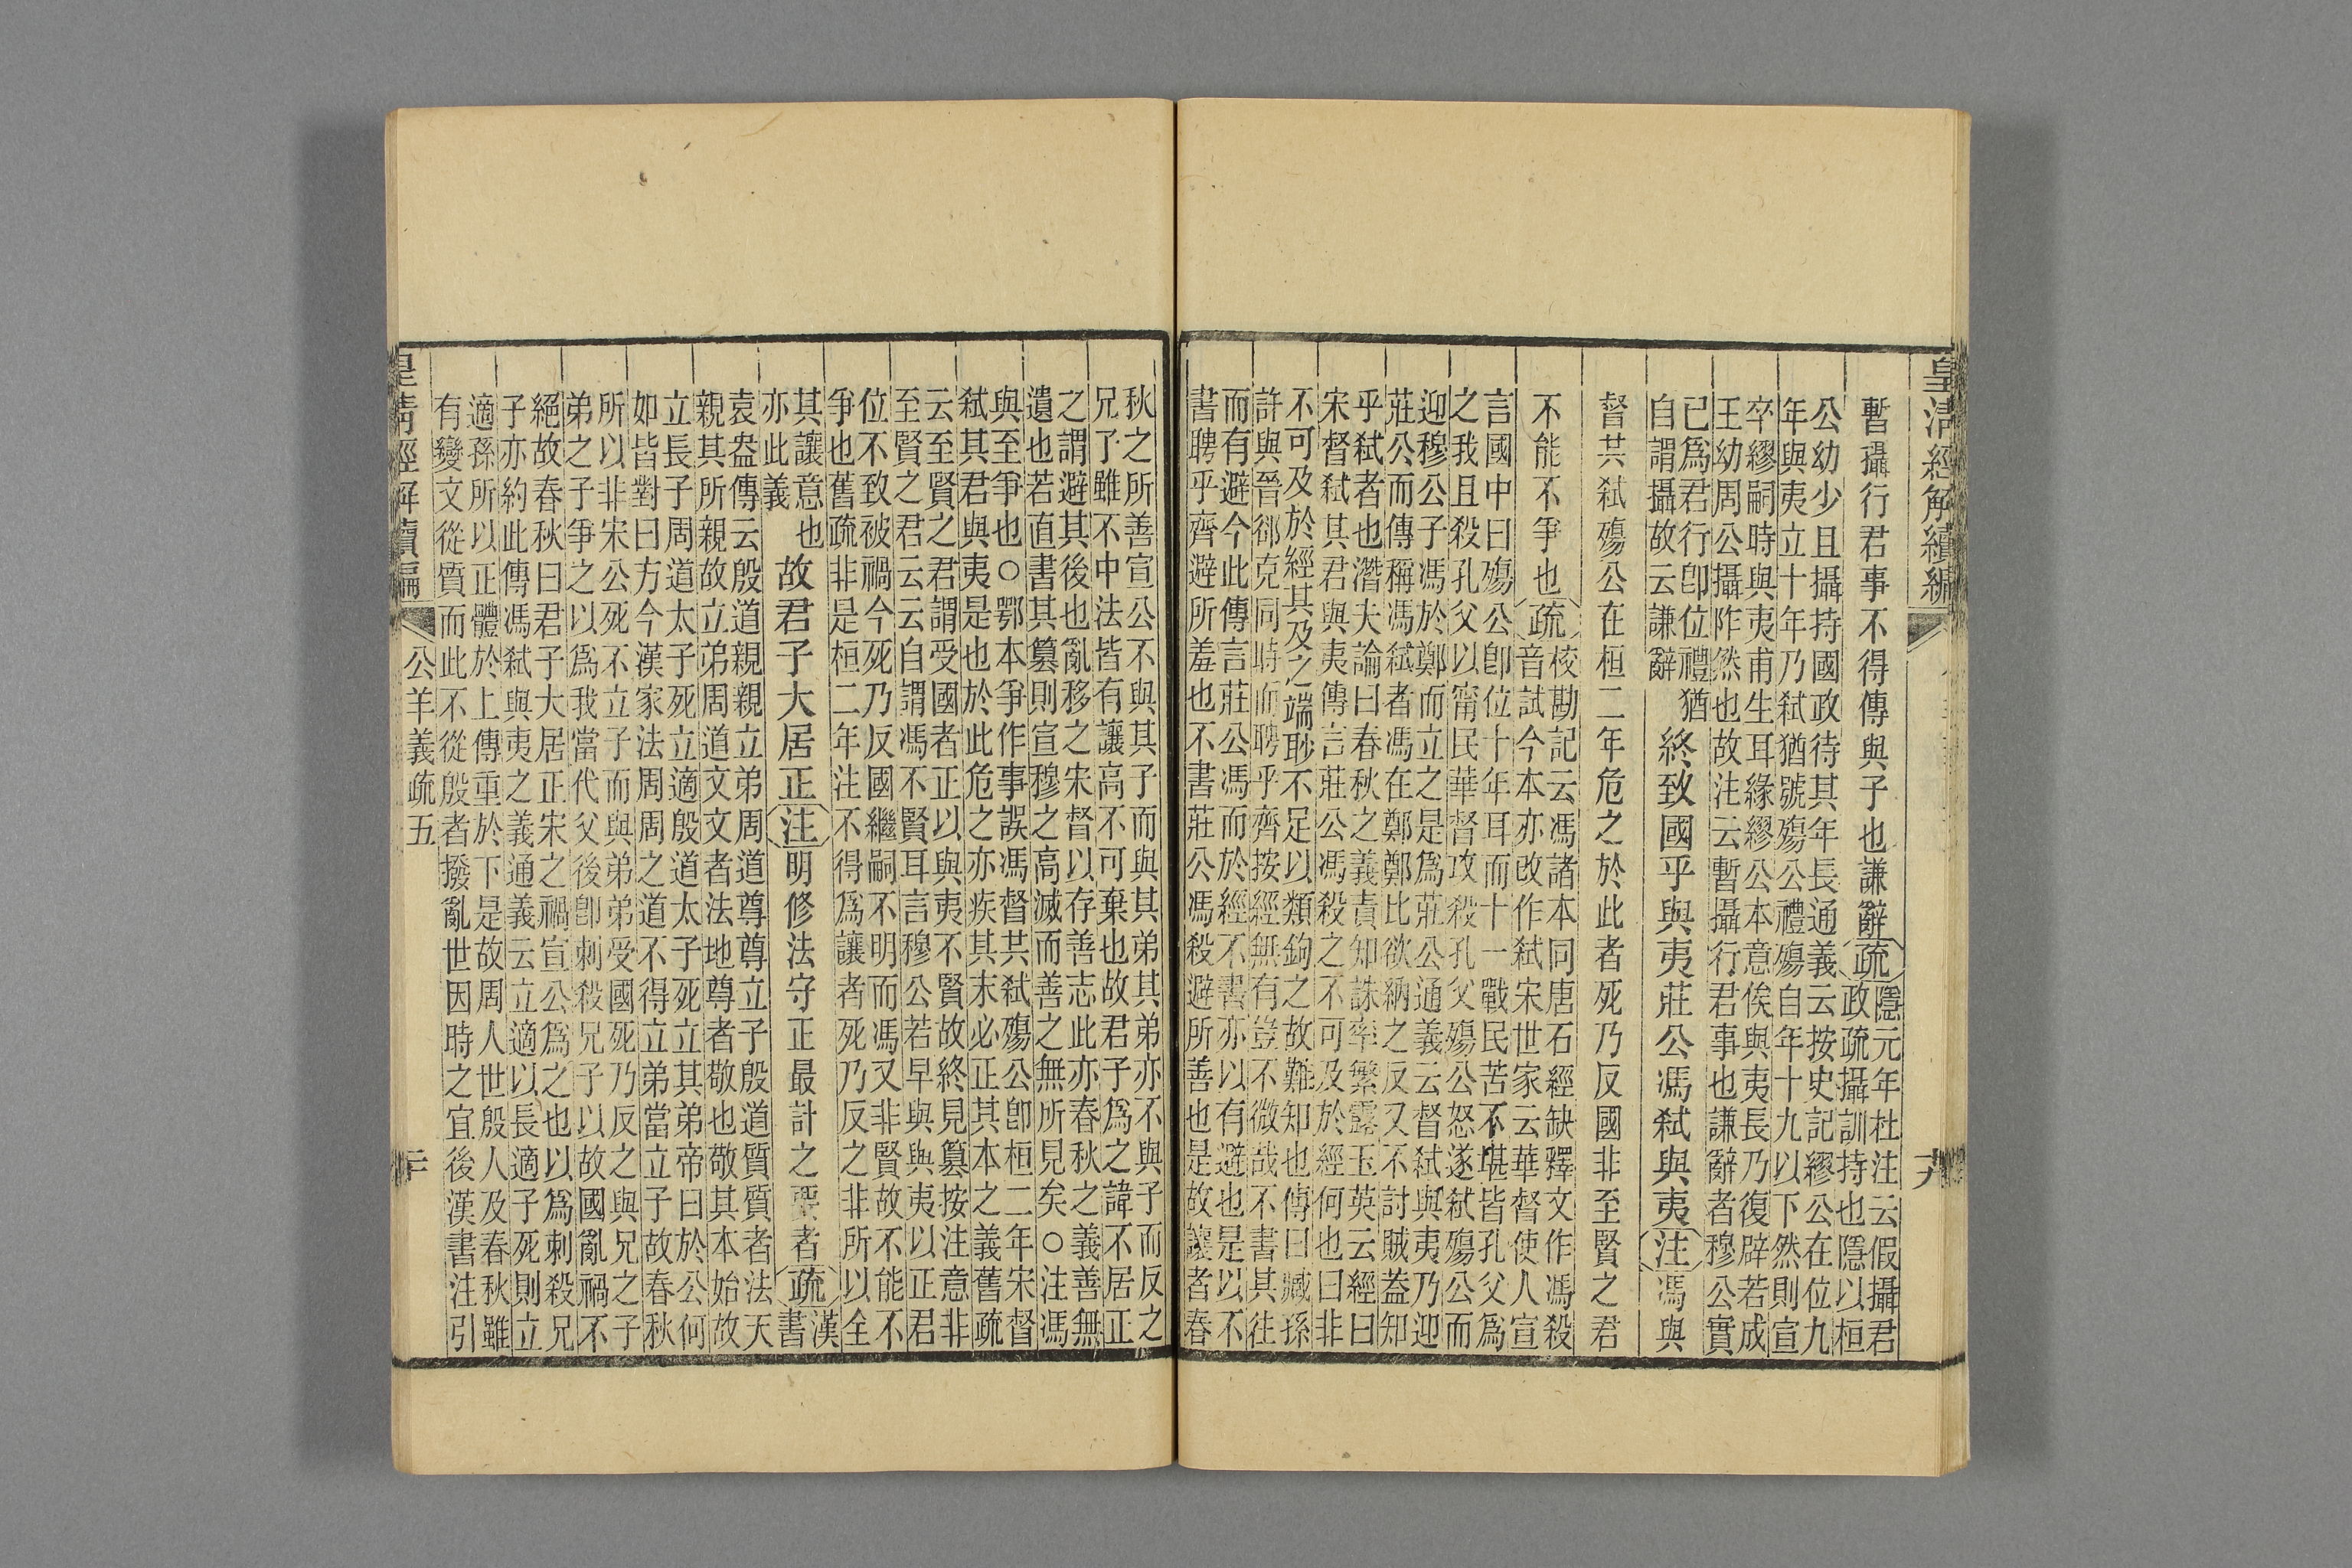 皇清經解續編
暫攝行君事不得傳與子也謙辭疏
隱元年杜注云假攝君
政疏攝訓持也隱以桓
公幼少且攝持國政待其年長通義云按史記繆公在位九
年與夷立十年乃弑猶號殤公禮殤自年十九以下然則宣
卒繆嗣時與夷甫生耳緣繆公本意俟與夷長乃復辟若成
王幼周公攝阼然也故注云暫攝行君事也謙辭者穆公實
已爲君行卽位禮猶
自謂攝故云謙辭
終致國乎與夷莊公馮弑與夷注馮與
督共弑殤公在桓二年危之於此者死乃反國非至賢之君
不能不爭也疏
校勘記云馮諸本同唐石經缺釋文作馮殺
音試今本亦改作弑宋世家云華督使人宣
言國中曰殤公卽位十年耳而十一戰民苦不堪皆孔父爲
之我且殺孔父以甯民華督攻殺孔父殤公怒遂弑殤公而
迎穆公子馮於鄭而立之是爲莊公通義云督弑與夷乃迎
莊公而傳稱馮弑者馮在鄭鄭比欲納之反又不討賊葢知
乎弑者也潛夫論曰春秋之義責知誅率繁露玉英云經曰
宋督弑其君與夷傳言莊公馮殺之不可及於經何也曰非
不可及於經其及之端眇不足以類鉤之故難知也傳曰臧孫
許與晉郤克同時而聘乎齊按經無有豈不微哉不書其往
而有避今此傳言莊公馮而於經不書亦以有避也是以不
書聘乎齊避所羞也不書莊公馮殺避所善也是故讓者春
秋之所善宣公不與其子而與其弟其弟亦不與子而反之
兄了雖不中法皆有讓高不可棄也故君子爲之諱不居正
之謂避其後也亂移之宋督以存善志此亦春秋之義善無
遺也若直書其篡則宣穆之高滅而善之無所見矣○注馮
與至爭也○鄂本爭作事誤馮督共弑殤公卽桓二年宋督
弑其君與夷是也於此危之亦疾其末必正其本之義舊疏
云至賢之君謂受國者正以與夷不賢故終見篡按注意非
至賢之君云云自謂馮不賢耳言穆公若早與與夷以正君
位不致被禍今死乃反國繼嗣不明而馮又非賢故不能不
爭也舊疏非是桓二年注不得爲讓者死乃反之非所以全
其讓意也
亦此義
故君子大居正注明修法守正最計之要者疏
漢
書
袁盎傳云殷道親親立弟周道尊尊立子殷道質質者法天
親其所親故立弟周道文文者法地尊者敬也敬其本始故
立長子周道太子死立適殷道太子死立其弟帝曰於公何
如皆對曰方今漢家法周周之道不得立弟當立子故春秋
所以非宋公死不立子而與弟弟受國死乃反之與兄之子
弟之子爭之以爲我當代父後卽刺殺兄子以故國亂禍不
絕故春秋曰君子大居正宋之禍宣公爲之也以爲刺殺兄
子亦約此傳馮弑與夷之義通義云立適以長適子死則立
適孫所以正體於上傳重於下是故周人世殷人及春秋雖
有變文從質而此不從殷者撥亂世因時之宜後漢書注引
皇清經解續編
公羊義疏五